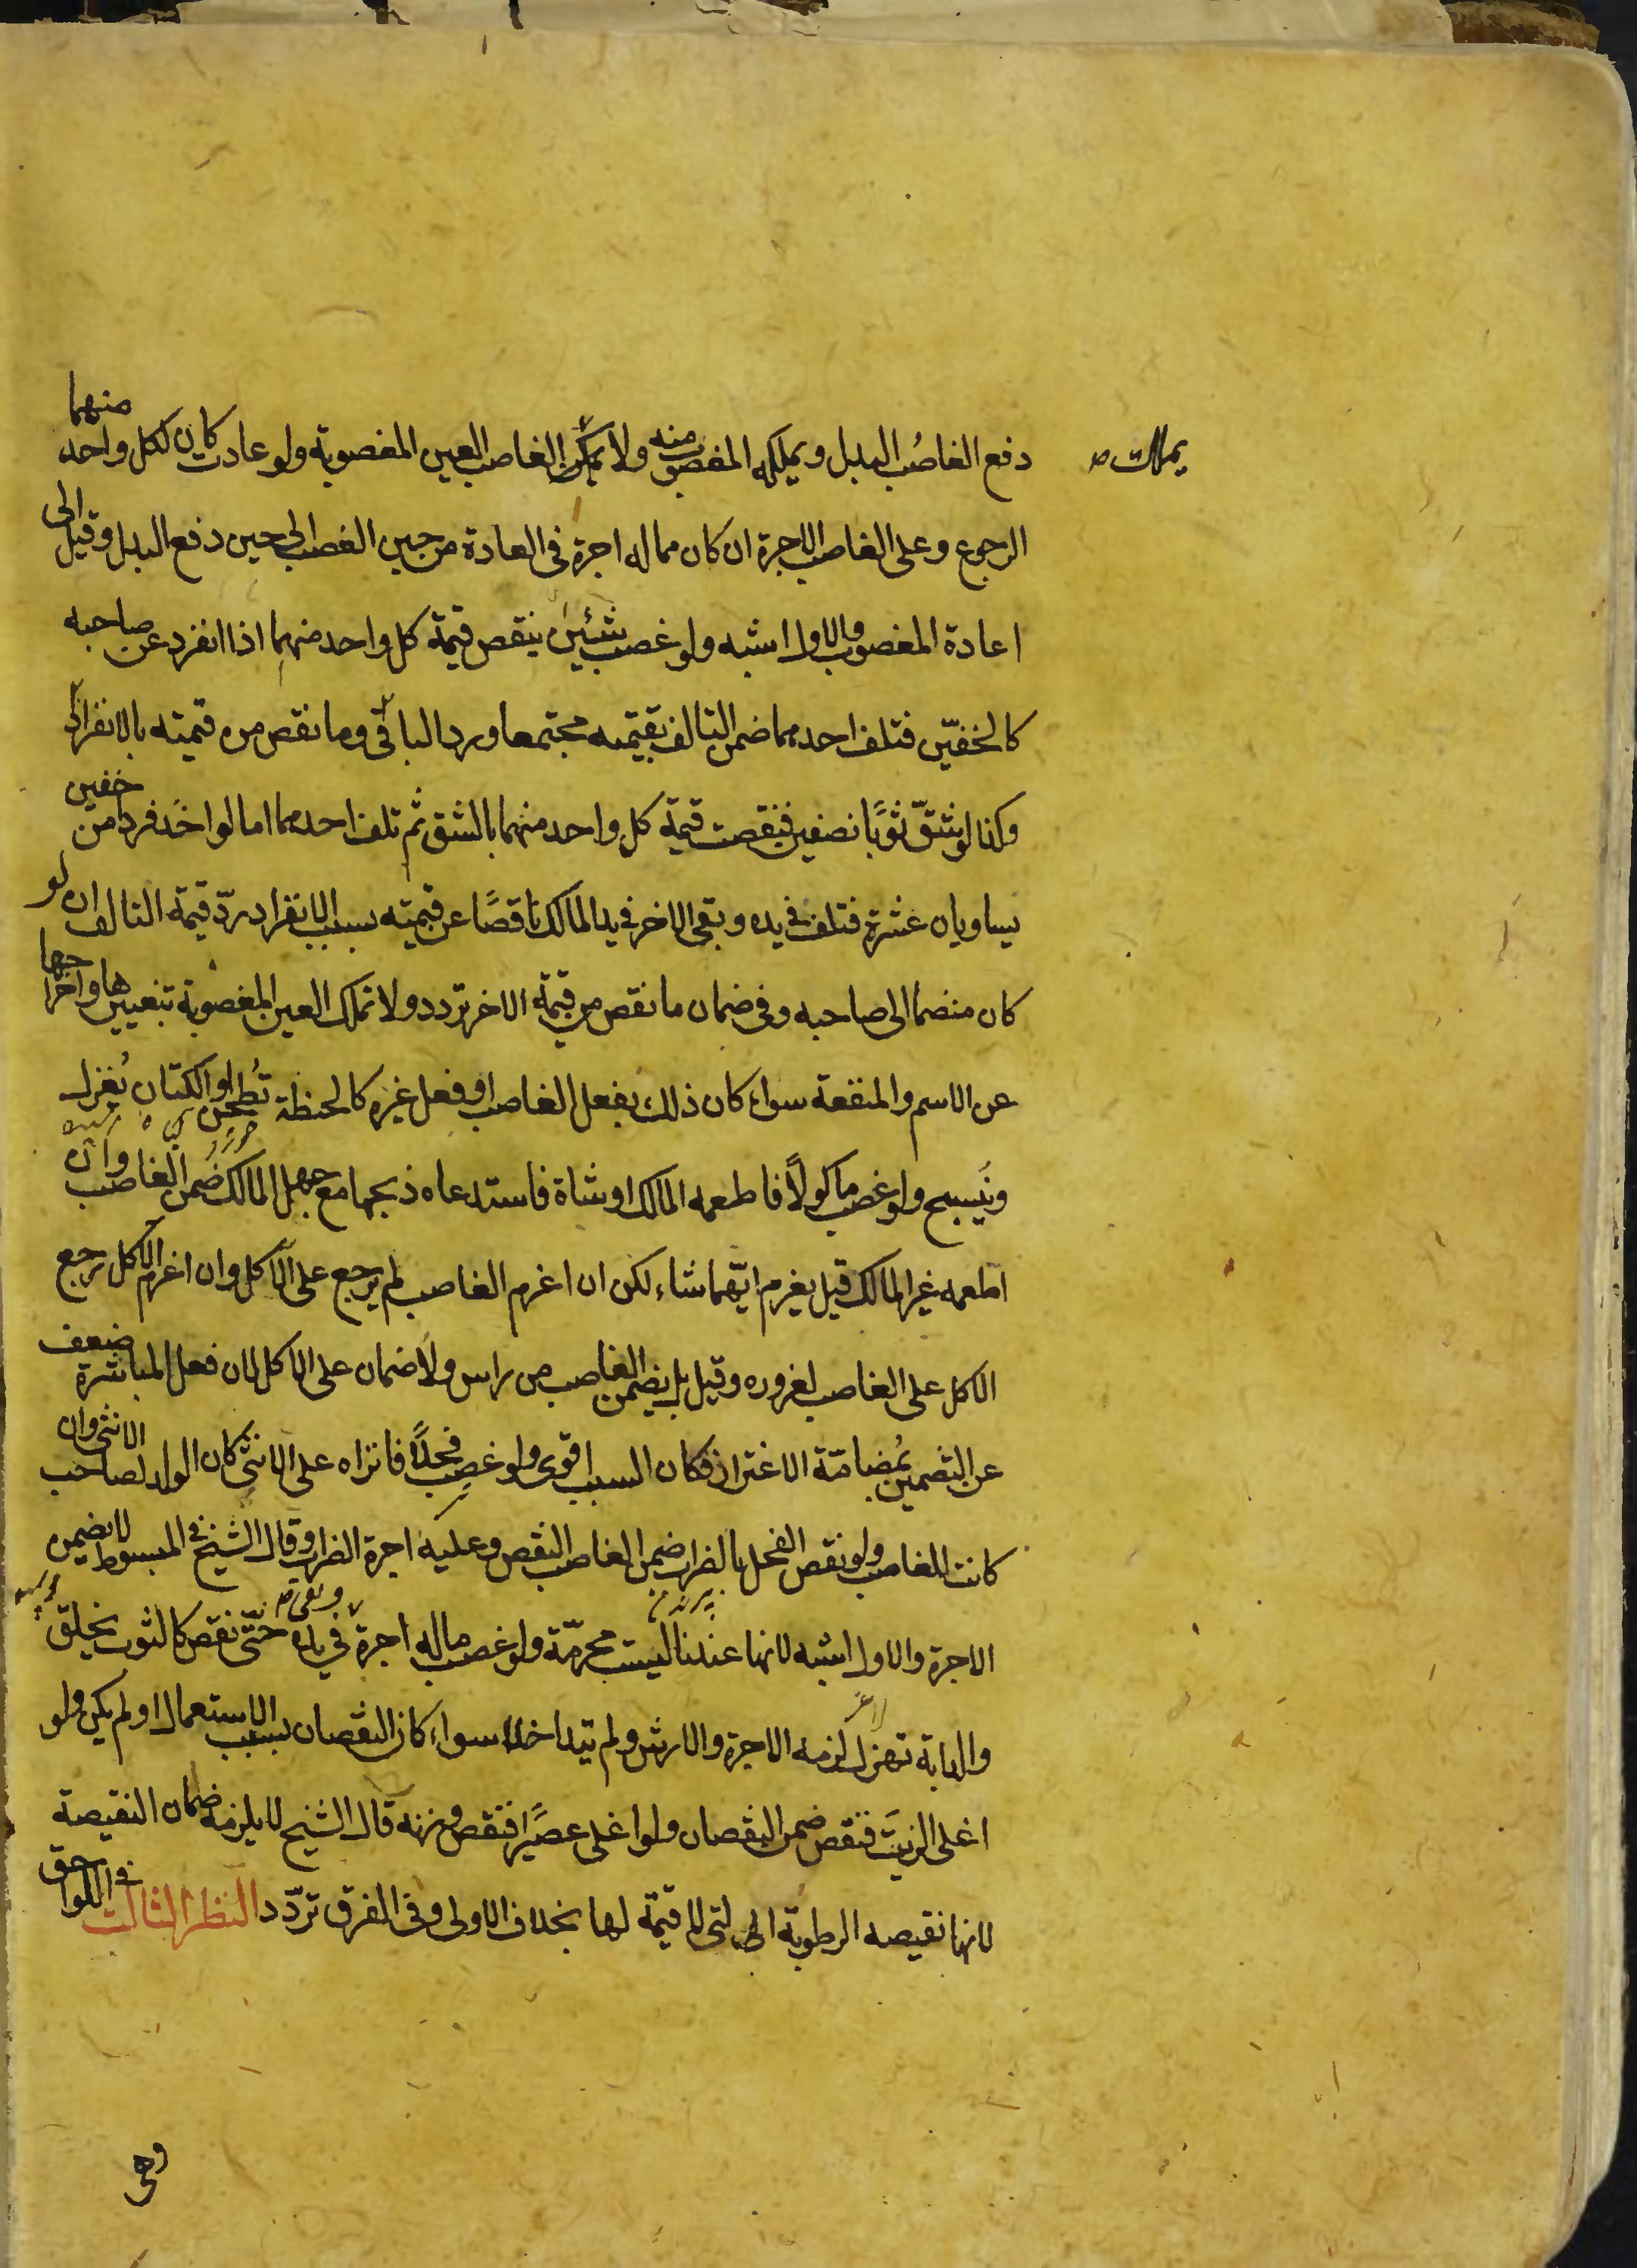 دفع الغاصُب البدل ويملكه المغصوب منه ولا يمكن الغاصب العين المغصوبة ولو عادت كان لكل واحد منهما
يملك ص
الرجوع وعلى الغاصب الاجرة ان كان مما له اجرة فى العادة من حين الغصب الى حين دفع البدل وقيل الى
اعادة المغصوب والاول اشبه ولو غصب شيئين ينقص قيمة كل واحد منهما اذا انفرد عن صاحبه
كالخفّين فتلف احدهما ضمن التالف بقيمته مجتمعا ورد الباقى وما نقص من قيمته بالانفراد
وكذا لو شقّ ثوبًا نصفين فنقصت قيمة كل واحد منهما بالشق ثم تلف احدهما اما لو اخذ فردا من خفين
يساويان عشرة فتلف فى يده وبقى الاخر فى يد المالك ناقصًا عن قيمته بسبب الانفراد ردّ قيمة التالف ان لو
كان منضما الى صاحبه وفى ضمان ما نقص من قيمة الاخر تردد ولا تملك العين المغصوبة بتغييرها واخراجها
عن الاسم والمنفعة سواء كان ذلك بفعل الغاصب او فعل غيره كالحنطة تُطحن او الكتان يُغزل
ويُنسج ولو غصب ماكولًا فاطعمه المالك او شاة فاستدعاه ذبحها مع جهل المالك ضمن الغاصب وان
اطعمه غير المالك قيل يغرم ايّهما شاء لكن ان اغرم الغاصب لم يرجع على الآكل وان اغرم الآكل رجع
الاكل على الغاصب لغروره وقيل بل يضمن الغاصب من راس ولا ضمان على الاكل لان فعل المباشرة ضعف
عن التضمين بمُضامّة الاغترار فكان السبب اقوى ولو غصب فحلًا فانزاه على الانثى كان الولد لصاحب الانثى وان
كانت للغاصب ولو نقص الفحل بالضراب ضمن الغاصب النقص وعليه اجرة الضراب وقال الشيخ فى المبسوط لا يضمن
الاجرة والاول اشبه لانها عندنا ليست محرمّة ولو غصب ما له اجرة وبقى فى يده حتّى نقص كالثوب يخلق
والدابة تهزل لزمه الاجرة والارش ولم يتداخلا سواء كان النقصان بسبب الاستعمال او لم يكن ولو
اغلى الزيتَ فنقص ضمن النقصان ولو اغلى عصيرًا فنقص وزنه قال الشيخ لا يلزمه ضمان النقيصة
لانها نقيصه الرطوبة التى لا قيمة لها بخلاف الاولى وفى الفرق تردّد النظر الثالث فى اللواحق
وهى